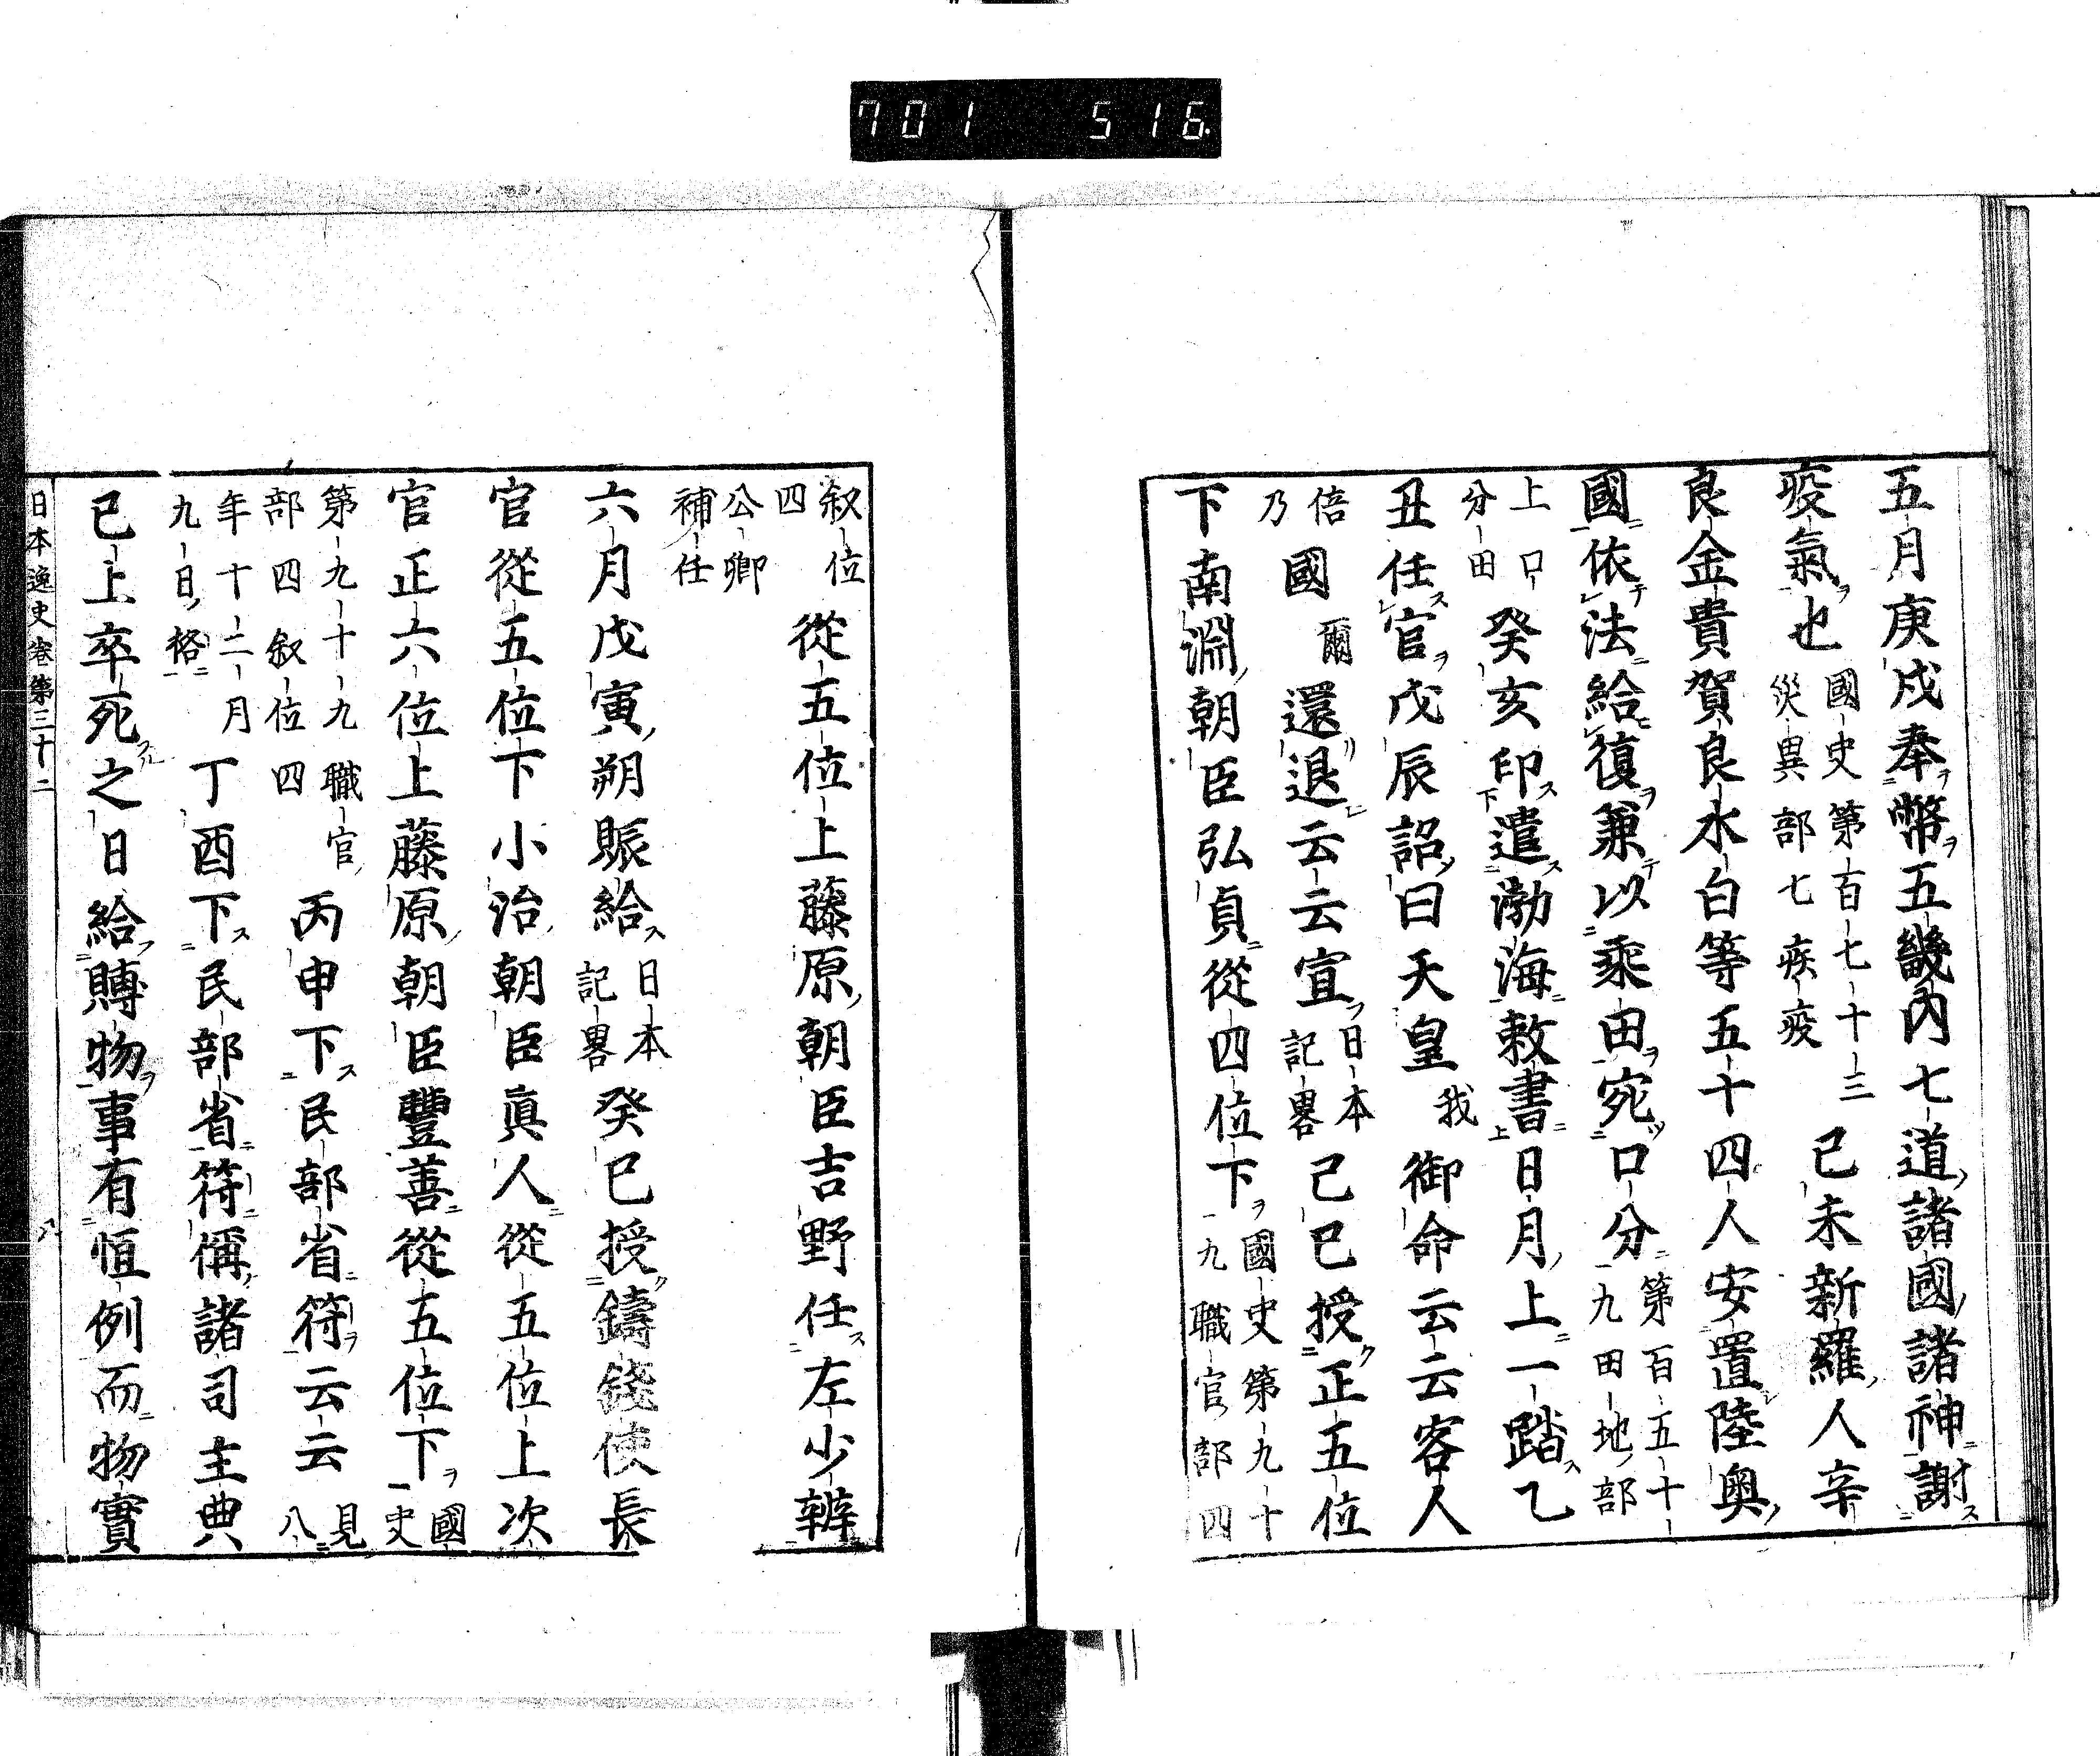 701 516.
五月庚戌奉幣五畿內七道諸國諸神謝
疫氣也國史第百七十三災異部七疾疫己未新羅人辛
良金貴賀良水白等五十四人安置陸奧
國依法給復兼以乘田宛口分第百五十九田地部
上口分田癸亥印遣渤海敕書日月上一踏乙
丑任官戊辰詔曰天皇我御命云云客人
倍乃國爾還退云云宣日本記畧己巳授正五位
下南淵朝臣弘貞從四位下國史第九十九職官部四
叙位四從五位上藤原朝臣吉野任左少辨
公卿補任
六月戊寅朔賑給日本記畧癸巳授鑄錢使長
官從五位下小治朝臣眞人從五位上次
官正六位上藤原朝臣豐善從五位下國史
第九十九職官部四叙位四丙申下民部省符云云見八
年十二月九日格丁酉下民部省符偁諸司主典
已上卒死之日給賻物事有恒例而物實
日本逸史卷第三十二 八